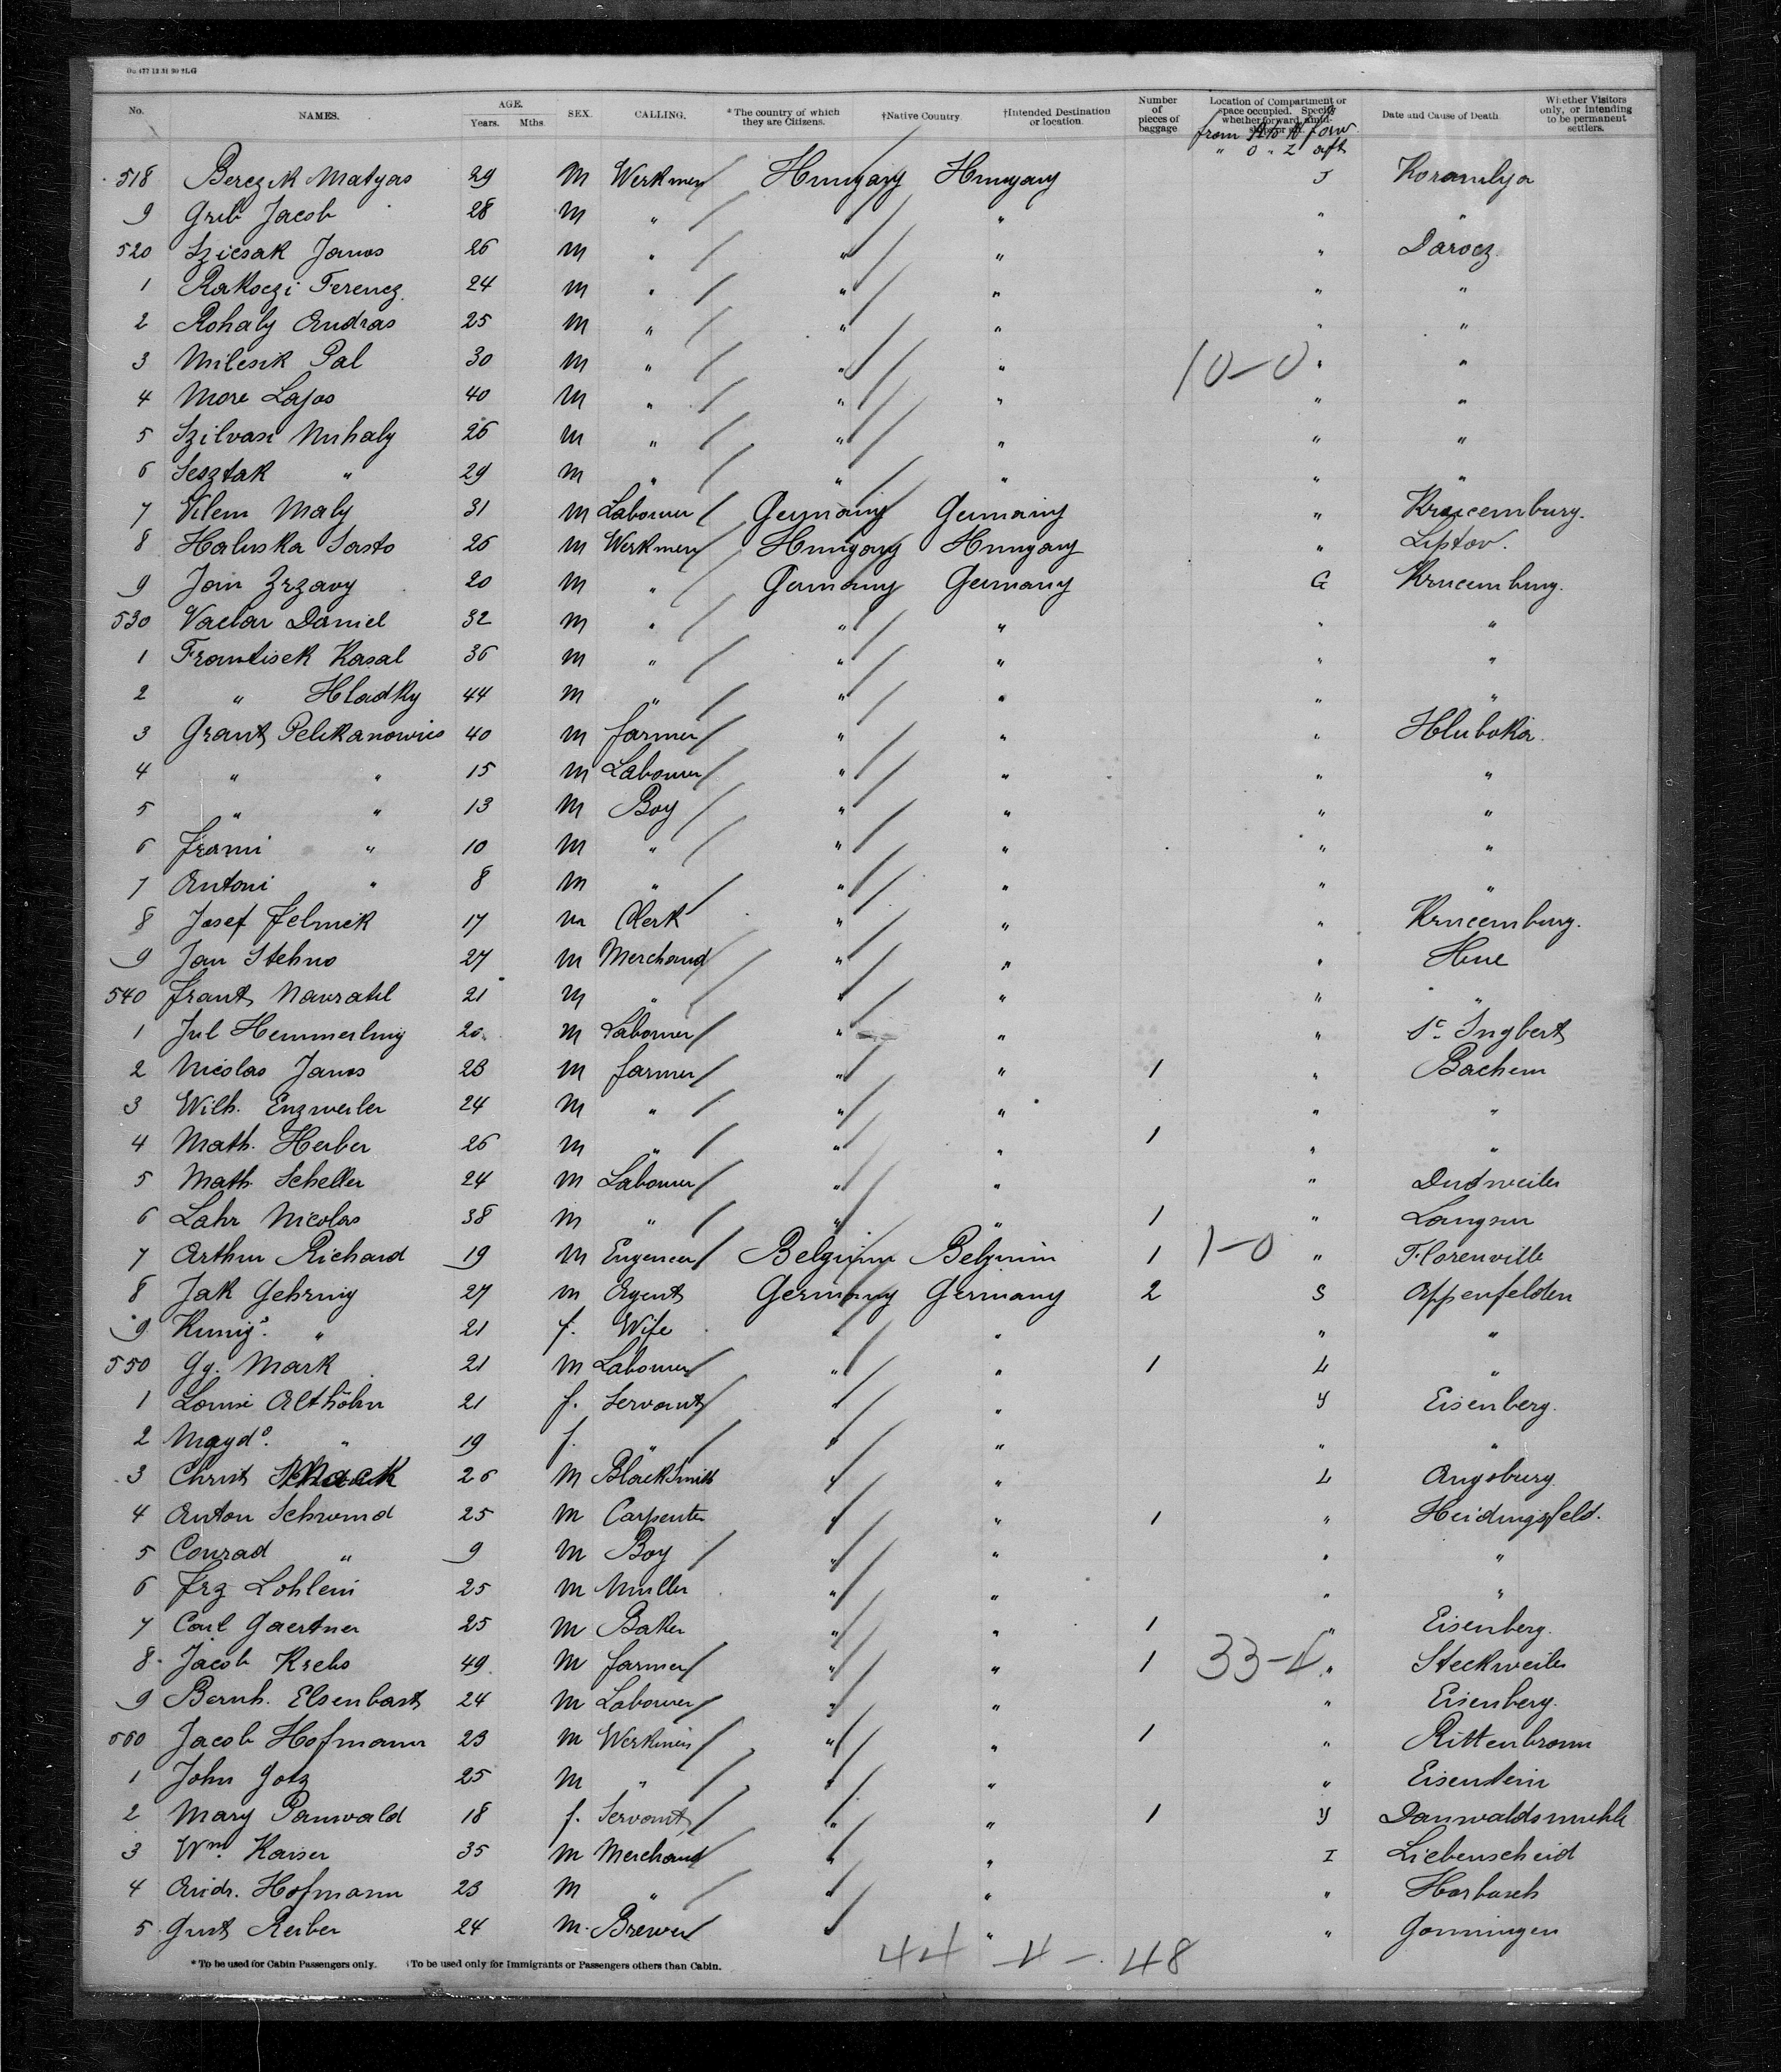 No. NAMES. AGE. Years. Mths. SEX. CALLING. * The country of which they are Citizens. †Native Country. †Intended Destination or location. Number of pieces of baggage Location of Compartment or space occupied. Date and Cause of Death. Whether Visitors only, or intending to be permanent settlers.
from forw.
" O " Z aft
518 Berezik Matyas 29 M Werkmen Hungary Hungary J Koromlya
9 Grib Jacob 28 M " " " " "
520 Szicsak Janos 26 M " " " " Darocz
1 Rakoczi Ferencz 24 M " " " " "
2 Rohaly Andras 25 M " " " " "
3 Milesik Pal 30 M " " " 10-0 " "
4 More Lajos 40 M " " " " "
5 Szilvasi Mihaly 26 M " " " " "
6 Sesztak " 29 M " " " " "
7 Vilem Maly 31 M Labourer Germany Germany " Krucemburg.
8 Haluska Sasto 26 M Werkmen Hungary Hungary " Liptov.
9 Jan Zrzavy 20 M " Germany Germany G Krucemburg.
530 Vaclav Daniel 32 M " " " " "
1 Frantisek Kasal 36 M " " " " "
2 " Hladky 44 M " " " " "
3 Grant Pelikanowics 40 M farmer " " " Hluboka.
4 " " 15 M Labourer " " " "
5 " " 13 M Boy " " " "
6 Frani " 10 M " " " " "
7 Antoni " 8 M " " " " "
8 Josef Jelinek 17 m Clerk " " " Krucemburg.
9 Jan Stehno 27 M Merchand " " "
540 Frant Navratil 21 M " " " " "
1 Jul Hemmerling 26 M Labourer " " " St. Ingbert
2 Nicolas Janos 23 M farmer " " 1 " Bachem
3 Wilh. Enzweiler 24 M " " " " "
4 Math. Herber 26 M " " " 1 " "
5 Math. Scheller 24 M Labourer " " " Dudweiler
6 Lahr Nicolas 38 M " " " 1 " Langsur
7 Arthur Richard 19 M Engeneer Belgium Belgium 1 1-0 " Florenville
8 Jak Gehring 27 m Agent Germany Germany 2 S Appenfelden
9 Kunig. " 21 f. Wife " " " "
550 Gg. Mark 21 M Labourer " " 1 L "
1 Louise Althöhn 21 f. Servant " " Y Eisenberg.
2 Magd. " 19 f. " " " " "
3 Christ 26 M BlackSmith " " L Augsburg.
4 Anton Schwind 25 M Carpenter " " 1 " Heidingsfeld.
5 Conrad " 9 M Boy " " " "
6 Frz Lohlein 25 M Muller " " " "
7 Carl Gaertner 25 M Baker " " 1 " Eisenberg.
8 Jacob Krebs 49 M farmer " " 1 33-4 " Steckweiler
9 Bernh. Elsenbast 24 M Labourer " " " Eisenberg.
560 Jacob Hofmann 23 M Werkmen " " 1 "
1 John Gotz 25 M " " " " Eisenstein
2 Mary Danwald 18 f. Servant " " 1 Y Danwaldsmuhle
3 Wm. Kaiser 35 M Merchand " " I Liebenscheid
4 Andr. Hofmann 23 M " " " "
5 Gust Reiber 24 M. Brewer " " Gonningen
44 4 - 48
* To be used for Cabin Passengers only. †To be used only for Immigrants or Passengers others than Cabin.